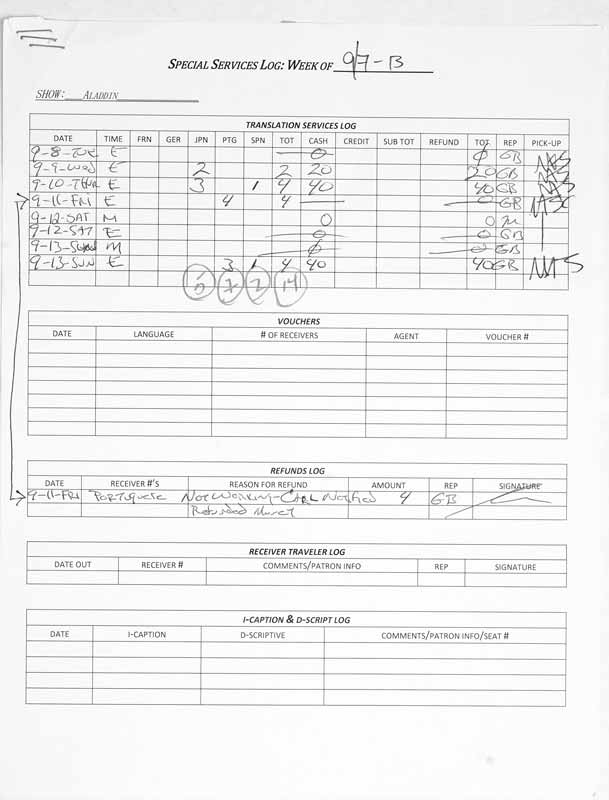 SPECIAL SERVICES LOG: WEEK OF 9/7-13
SHOW: ALADDIN
TRANSLATION SERVICES LOG
DATE TIME FRN GER JPN PTG SPN TOT CASH CREDIT SUB TOT REFUND TOT REP PICK-UP
9-8-TUE E — 0 0 GB
9-9-WED E 2 2 20 20 GB
9-10-THUR E 3 1 4 40 40 GB
9-11-FRI E 4 4 — 0 GB
9-12-SAT M 0 0
9-12-SAT E 0 0 GB
9-13-SUN M 0 0 GB
9-13-SUN E 3 1 4 40 40 GB
5 7 2 14
VOUCHERS
DATE LANGUAGE # OF RECEIVERS AGENT VOUCHER #
REFUNDS LOG
DATE RECEIVER #'S REASON FOR REFUND AMOUNT REP SIGNATURE
9-11-FRI PORTUGUESE NOT WORKING-CARL NOTIFIED 4 GB
REFUNDED MONEY
RECEIVER TRAVELER LOG
DATE OUT RECEIVER # COMMENTS/PATRON INFO REP SIGNATURE
I-CAPTION & D-SCRIPT LOG
DATE I-CAPTION D-SCRIPTIVE COMMENTS/PATRON INFO/SEAT #